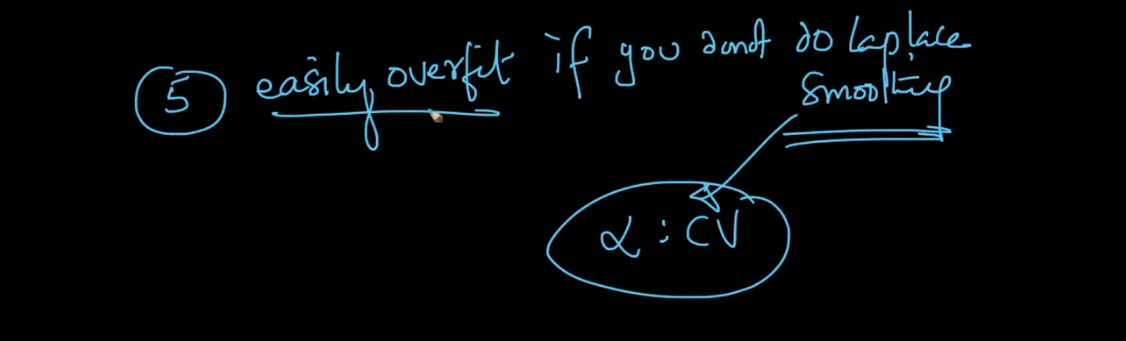 5 easily overfit if you dont do Laplace
Smoothing
α : CV